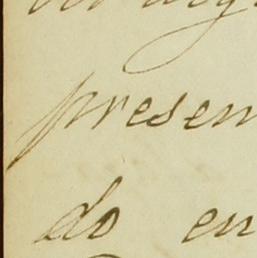 presen
do en